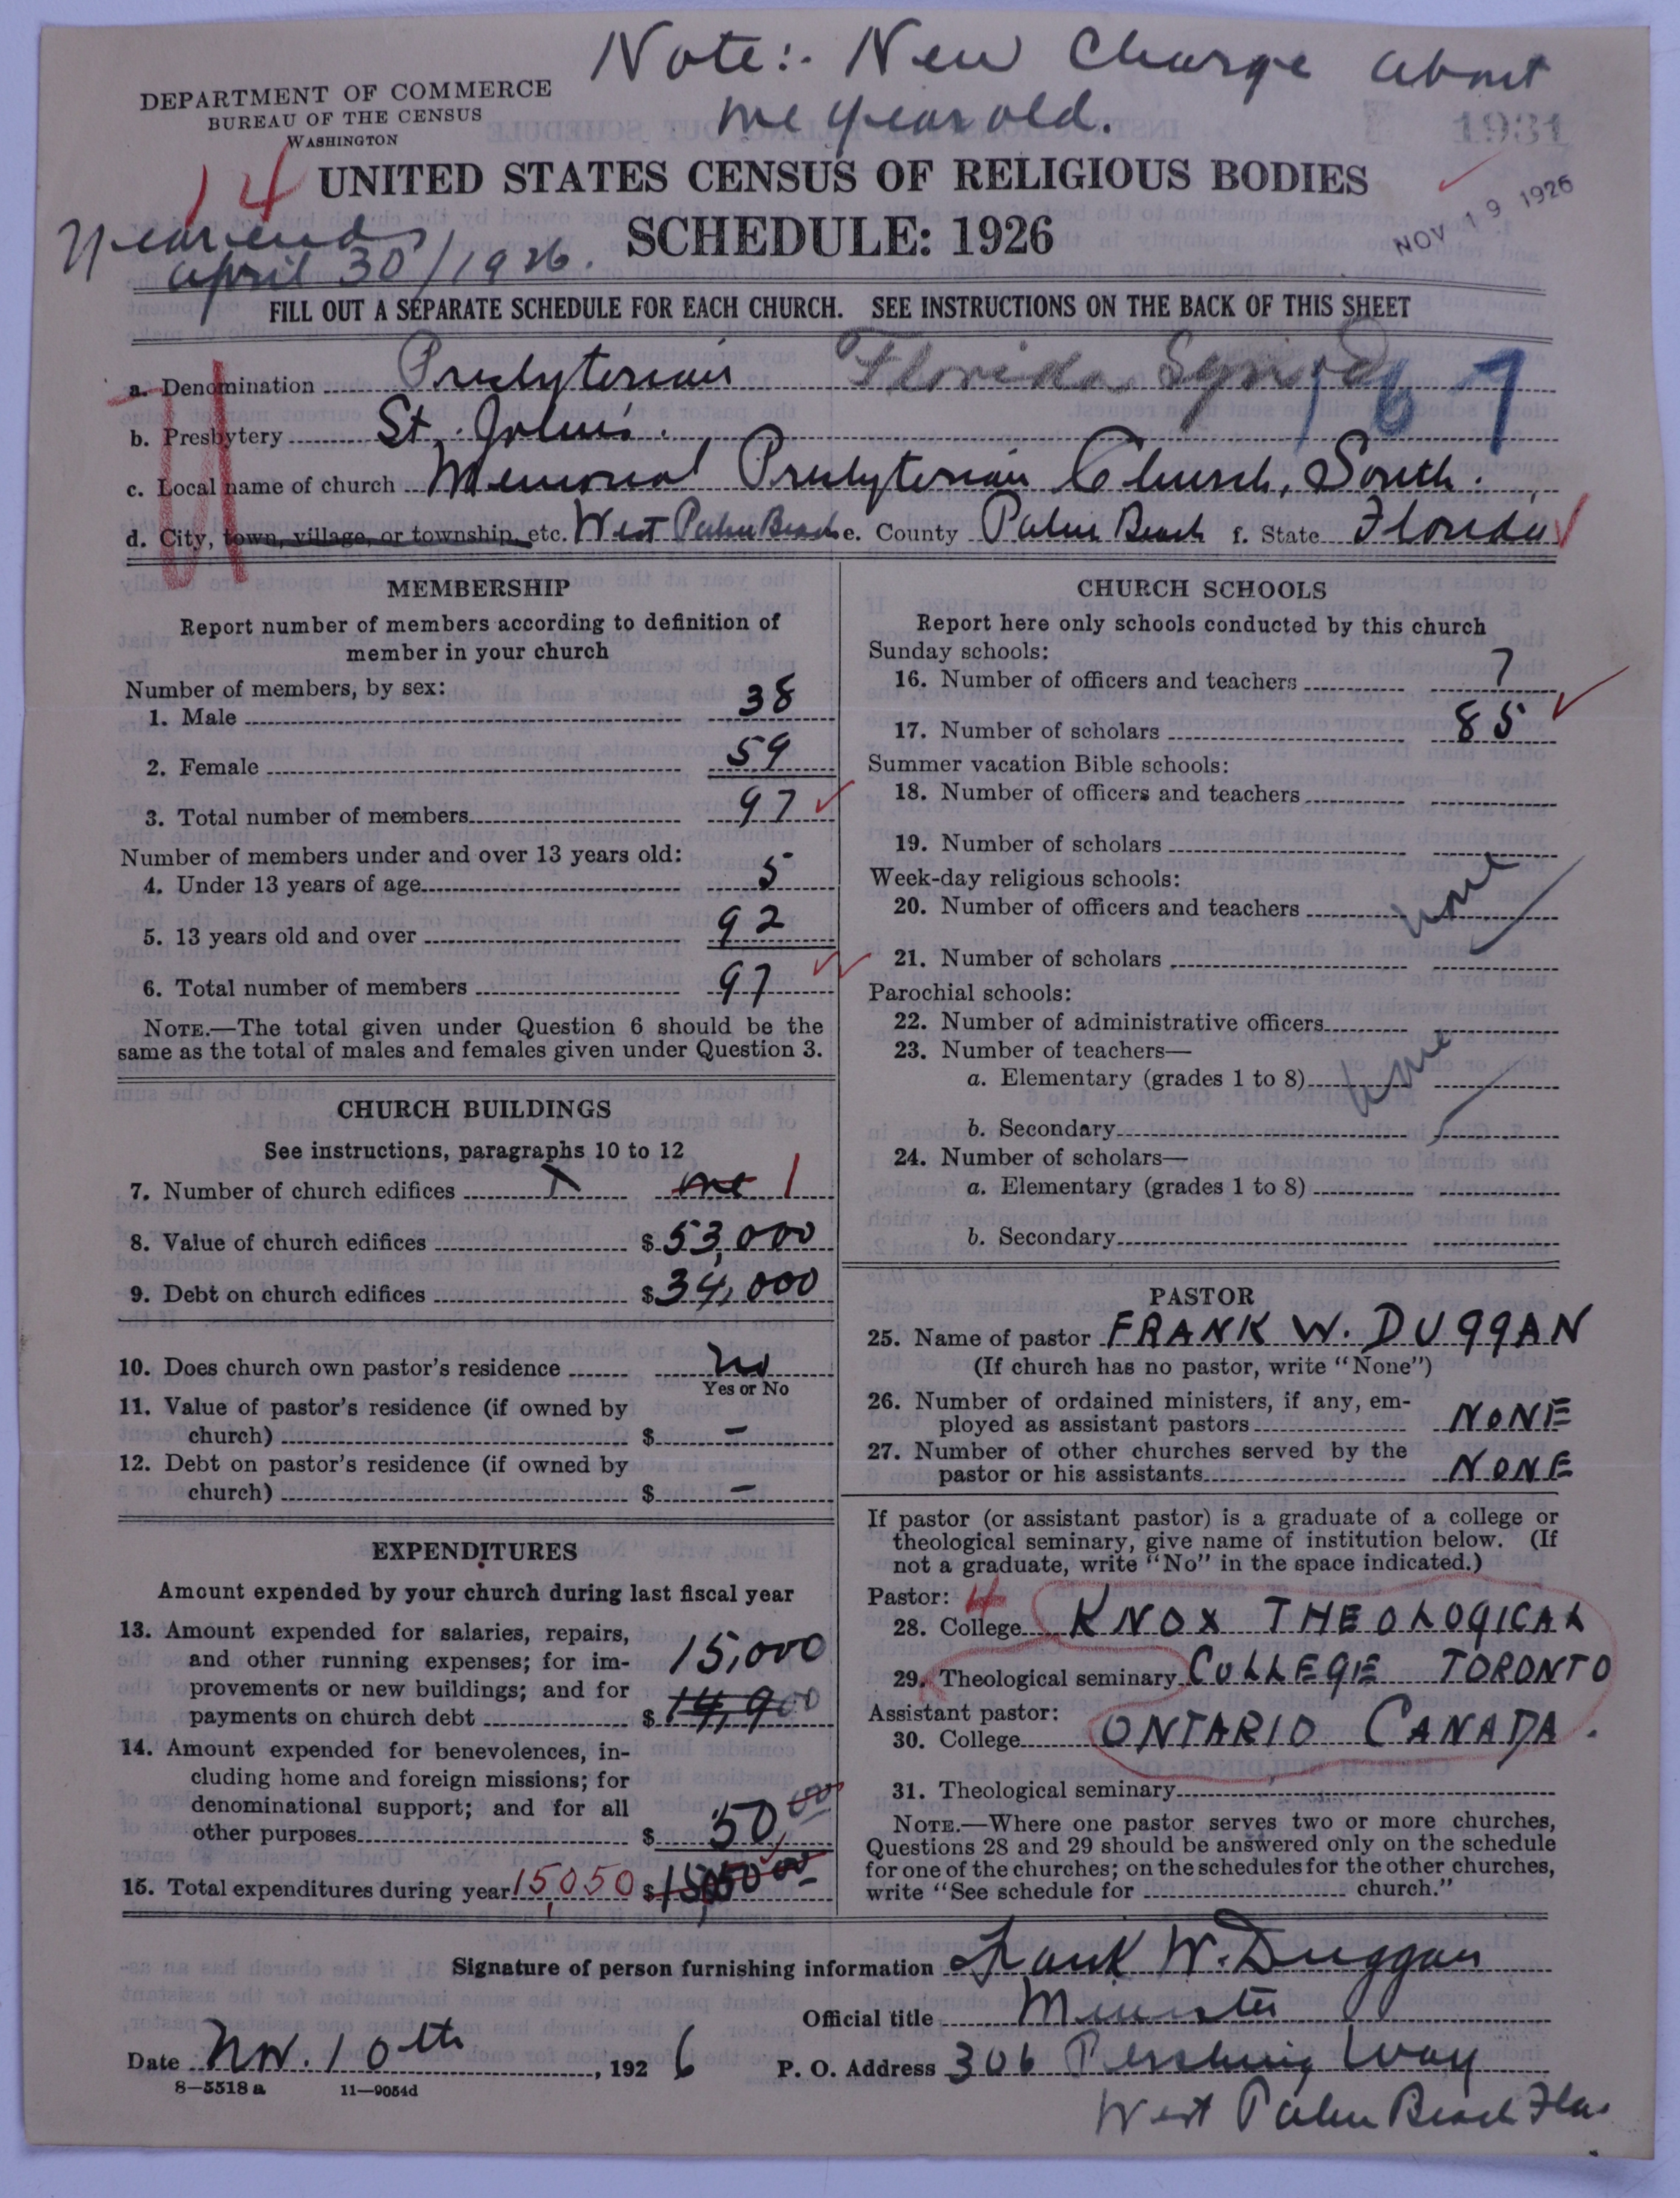 Note:- New Charge about
one year old.
DEPARTMENT OF COMMERCE
BUREAU OF THE CENSUS
WASHINGTON
1931
14
UNITED STATES CENSUS OF RELIGIOUS BODIES
SCHEDULE: 1926
NOV 19 1926
Year ends
April 30/1926.
FILL OUT A SEPARATE SCHEDULE FOR EACH CHURCH. SEE INSTRUCTIONS ON THE BACK OF THIS SHEET
a. Denomination Presbyterian Florida Synod 167
b. Presbytery St. John's.
c. Local name of church Memorial Presbyterian Church, South.
d. City, town, village, or township, etc. West Palm Beach e. County Palm Beach f. State Florida
MEMBERSHIP
Report number of members according to definition of
member in your church
Number of members, by sex:
1. Male 38
2. Female 59
3. Total number of members 97
Number of members under and over 13 years old:
4. Under 13 years of age 5
5. 13 years old and over 92
6. Total number of members 97
NOTE.—The total given under Question 6 should be the
same as the total of males and females given under Question 3.
CHURCH BUILDINGS
See instructions, paragraphs 10 to 12
7. Number of church edifices one 1
8. Value of church edifices $ 53,000
9. Debt on church edifices $ 34,000
10. Does church own pastor's residence no
Yes or No
11. Value of pastor's residence (if owned by
church) $ –
12. Debt on pastor's residence (if owned by
church) $ –
EXPENDITURES
Amount expended by your church during last fiscal year
13. Amount expended for salaries, repairs,
and other running expenses; for im- 15,000
provements or new buildings; and for
payments on church debt $ 14,900
14. Amount expended for benevolences, in-
cluding home and foreign missions; for
denominational support; and for all
other purposes $ 50 00
15. Total expenditures during year 15,050 $ 15,050 00
CHURCH SCHOOLS
Report here only schools conducted by this church
Sunday schools:
16. Number of officers and teachers 7
17. Number of scholars 85
Summer vacation Bible schools:
18. Number of officers and teachers
19. Number of scholars
Week-day religious schools:
20. Number of officers and teachers none
21. Number of scholars
Parochial schools:
22. Number of administrative officers
23. Number of teachers—
a. Elementary (grades 1 to 8) none
b. Secondary
24. Number of scholars—
a. Elementary (grades 1 to 8)
b. Secondary
PASTOR
25. Name of pastor FRANK W. DUGGAN
(If church has no pastor, write "None")
26. Number of ordained ministers, if any, em-
ployed as assistant pastors NONE
27. Number of other churches served by the
pastor or his assistants NONE
If pastor (or assistant pastor) is a graduate of a college or
theological seminary, give name of institution below. (If
not a graduate, write "No" in the space indicated.)
Pastor: 4
28. College KNOX THEOLOGICAL
29. Theological seminary COLLEGE TORONTO
Assistant pastor:
30. College ONTARIO CANADA.
31. Theological seminary
NOTE.—Where one pastor serves two or more churches,
Questions 28 and 29 should be answered only on the schedule
for one of the churches; on the schedules for the other churches,
write "See schedule for church."
Signature of person furnishing information Frank W. Duggan
Official title Minister
Date Nov. 10th, 1926 P. O. Address 306 Pershing Way
8—5518 a 11—9054d
West Palm Beach Fla.